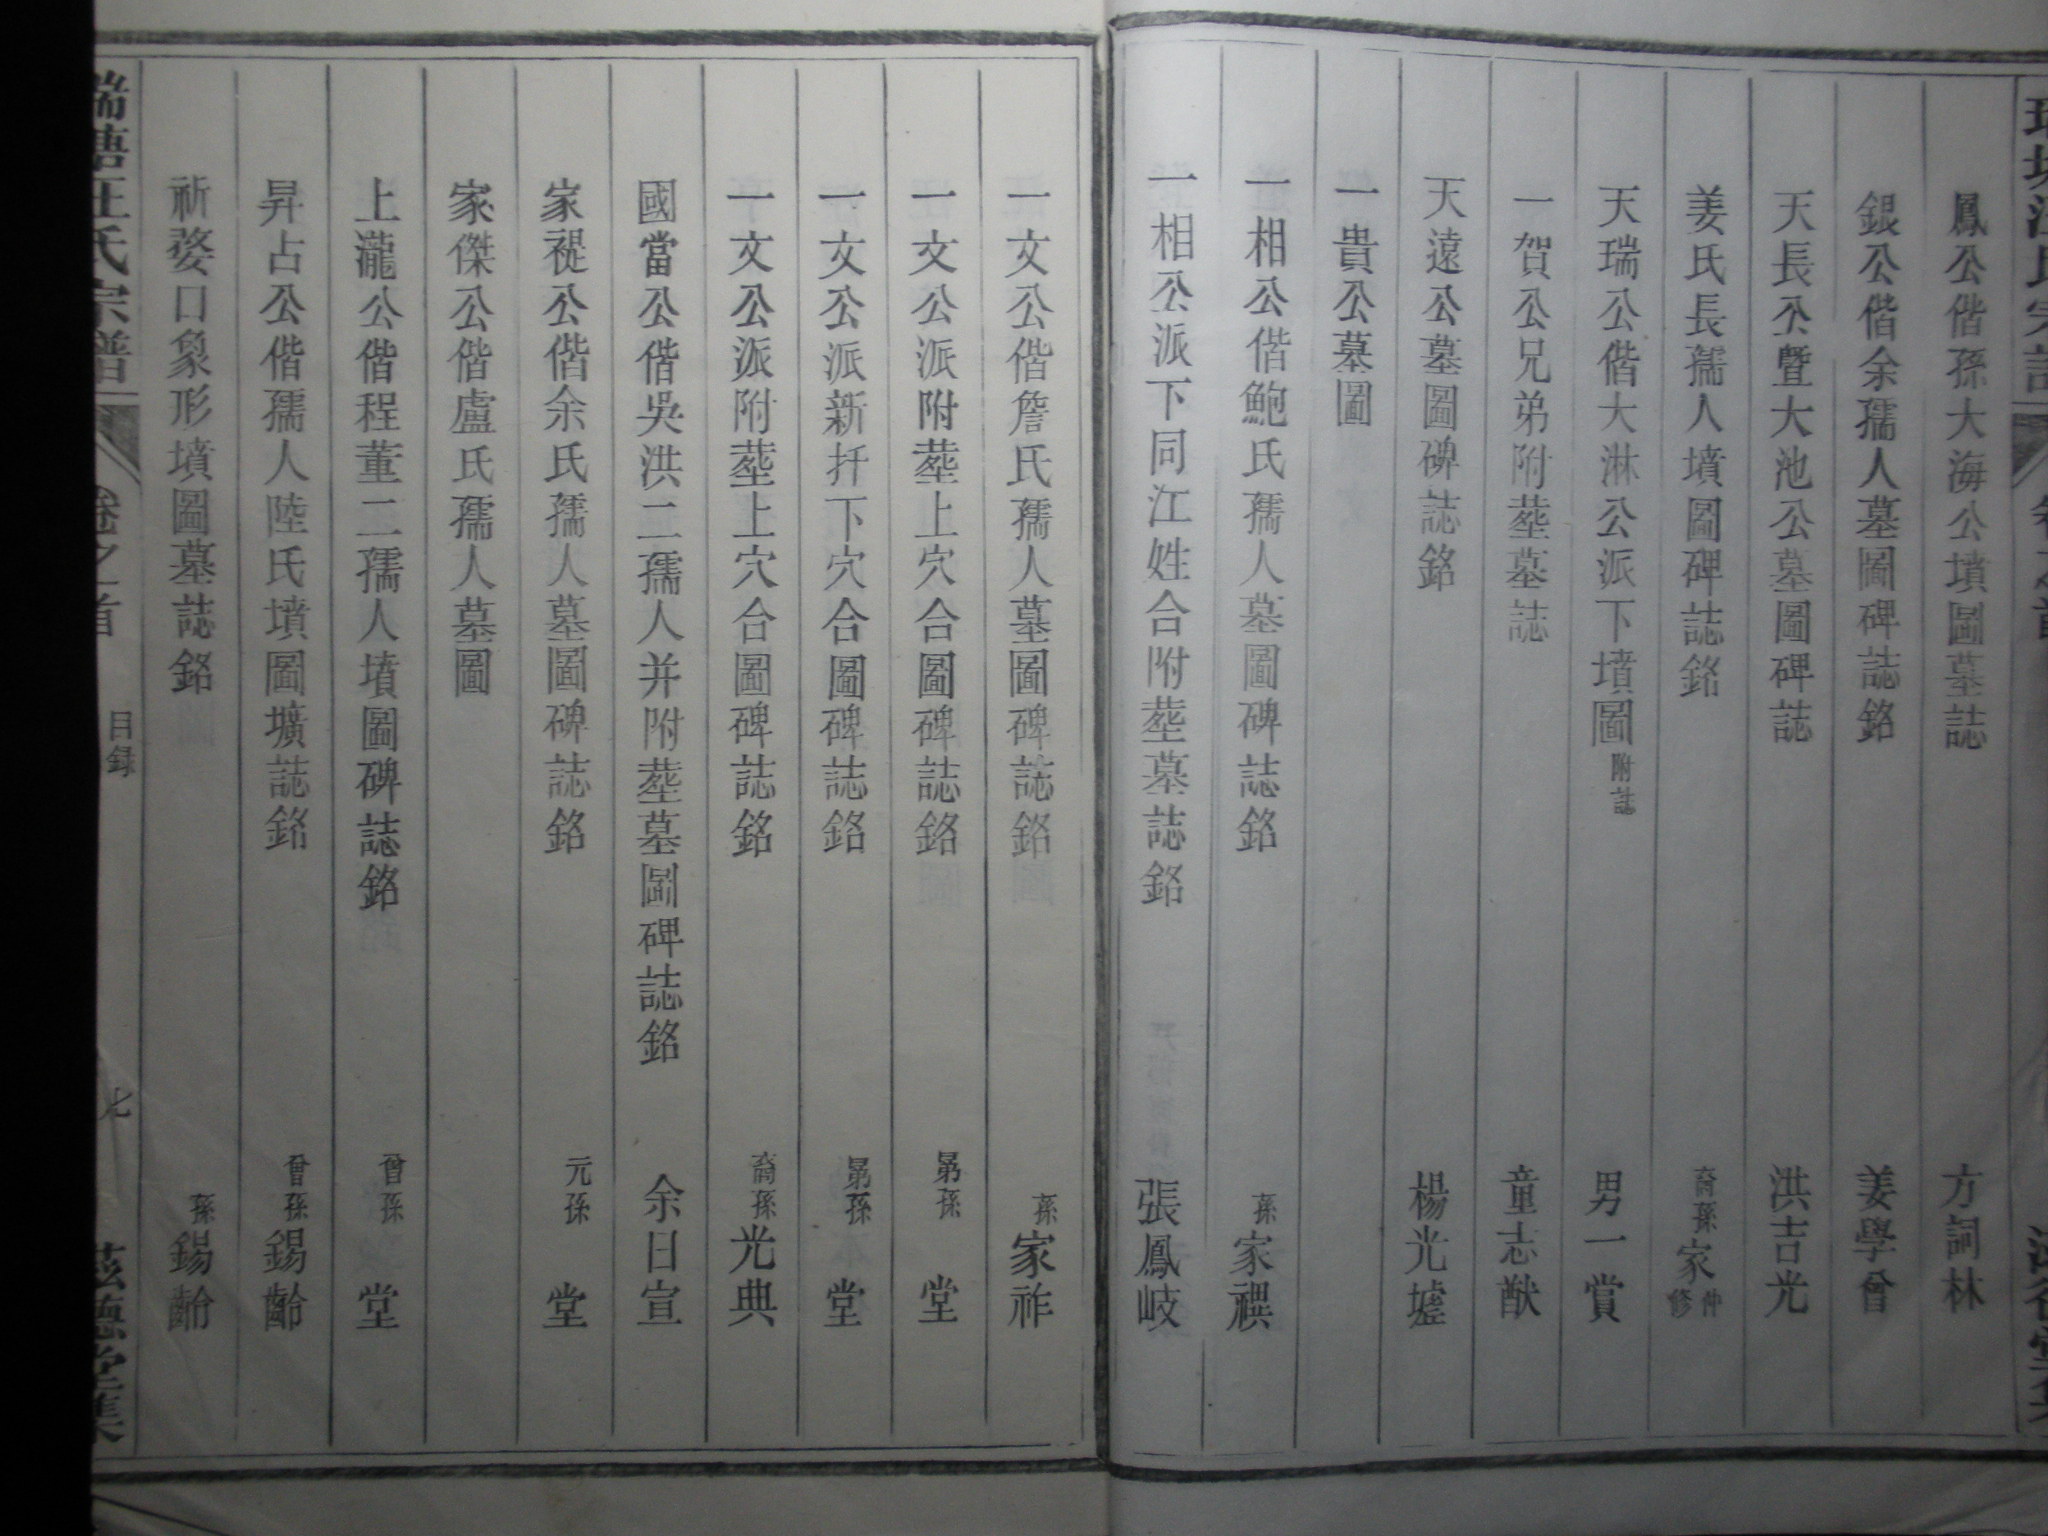 鳳公偕孫大海公墳圖墓誌 方詞林
銀公偕余孺人墓圖碑誌銘 姜學曾
天長公暨大池公墓圖碑誌 洪吉光
姜氏長孺人墳圖碑誌銘 裔孫家仲修
天瑞公偕大淋公派下墳圖附誌 男一賞
一賀公兄弟附塟墓誌 童志猷
天遠公墓圖碑誌銘 楊光墟
一貴公墓圖
一相公偕鮑氏孺人墓圖碑誌銘 孫家禩
一相公派下同江姓合附塟墓誌銘 張鳳岐
一文公偕詹氏孺人墓圖碑誌銘 孫家祚
一文公派附塟上穴合圖碑誌銘 晜孫堂
一文公派新扦下穴合圖碑誌銘 晜孫堂
一文公派附塟上穴合圖碑誌銘 裔孫光典
國當公偕吳洪二孺人并附塟墓圖碑誌銘 余日宣
家禔公偕余氏孺人墓圖碑誌銘 元孫堂
家傑公偕盧氏孺人墓圖
上瀧公偕程董二孺人墳圖碑誌銘 曾孫堂
昇占公偕孺人陸氏墳圖壙誌銘 曾孫錫齡
祈婺口象形墳圖墓誌銘 孫錫齡
汪氏宗譜 卷之首 目録 七 德堂集